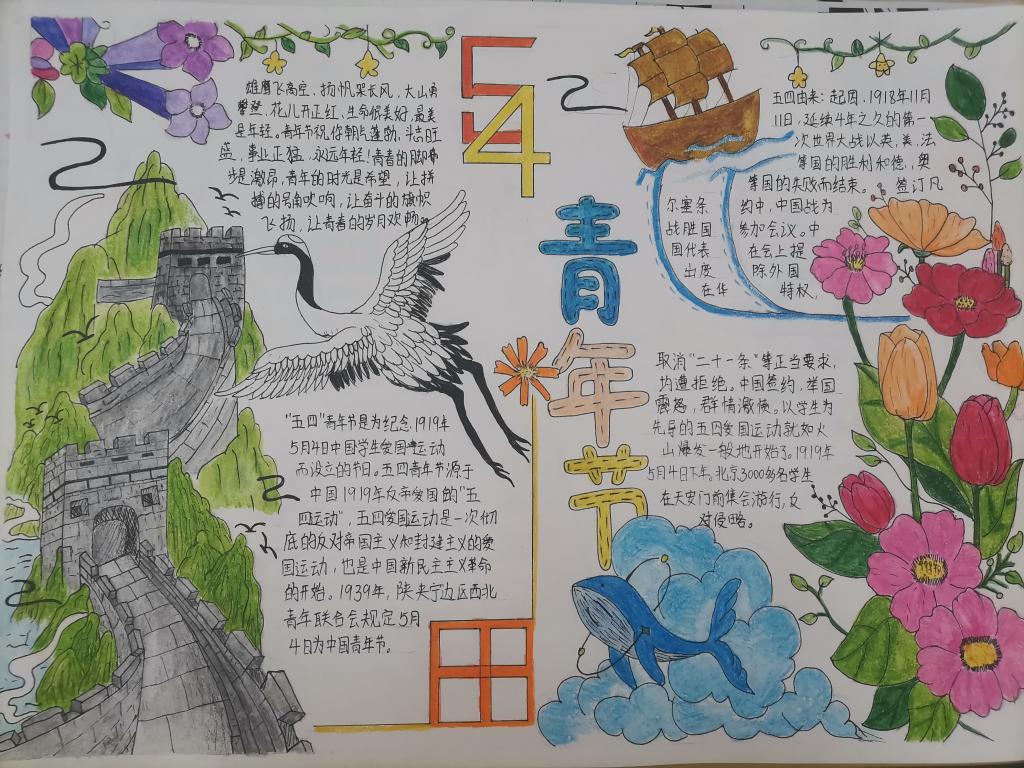 54
青年节
雄鹰飞高空，扬帆乘长风，大山勇
攀登，花儿开正红，生命很美好，最美
是年轻。青年节祝你朝气蓬勃，斗志旺
盛，事业正猛，永远年轻！青春的脚
步是激昂，青年的时光是希望，让拼
搏的号角吹响，让奋斗的旗帜
飞扬，让青春的岁月欢畅。
"五四"青年节是为纪念1919年
5月4日中国学生爱国运动
而设立的节日。五四青年节源于
中国1919年反帝爱国的"五
四运动"，五四爱国运动是一次彻
底的反对帝国主义和封建主义的爱
国运动，也是中国新民主主义革命
的开始。1939年，陕夹宁边区西北
青年联合会规定5月
4日为中国青年节。
五四由来：起因，1918年11月
11日，延续4年之久的第一
次世界大战以英、美、法
等国的胜利和德、奥
等国的失败而结束。签订凡
尔塞条约中，中国战为
战胜国参加会议。中
国代表在会上提
出废除外国
在华特权，
取消"二十一条"等正当要求，
均遭拒绝。中国签约，举国
震怒，群情激愤。以学生为
先导的五四爱国运动就如火
山爆发一般地开始了。1919年
5月4日下午，北京3000多名学生
在天安门前集会游行，反
对侵略。